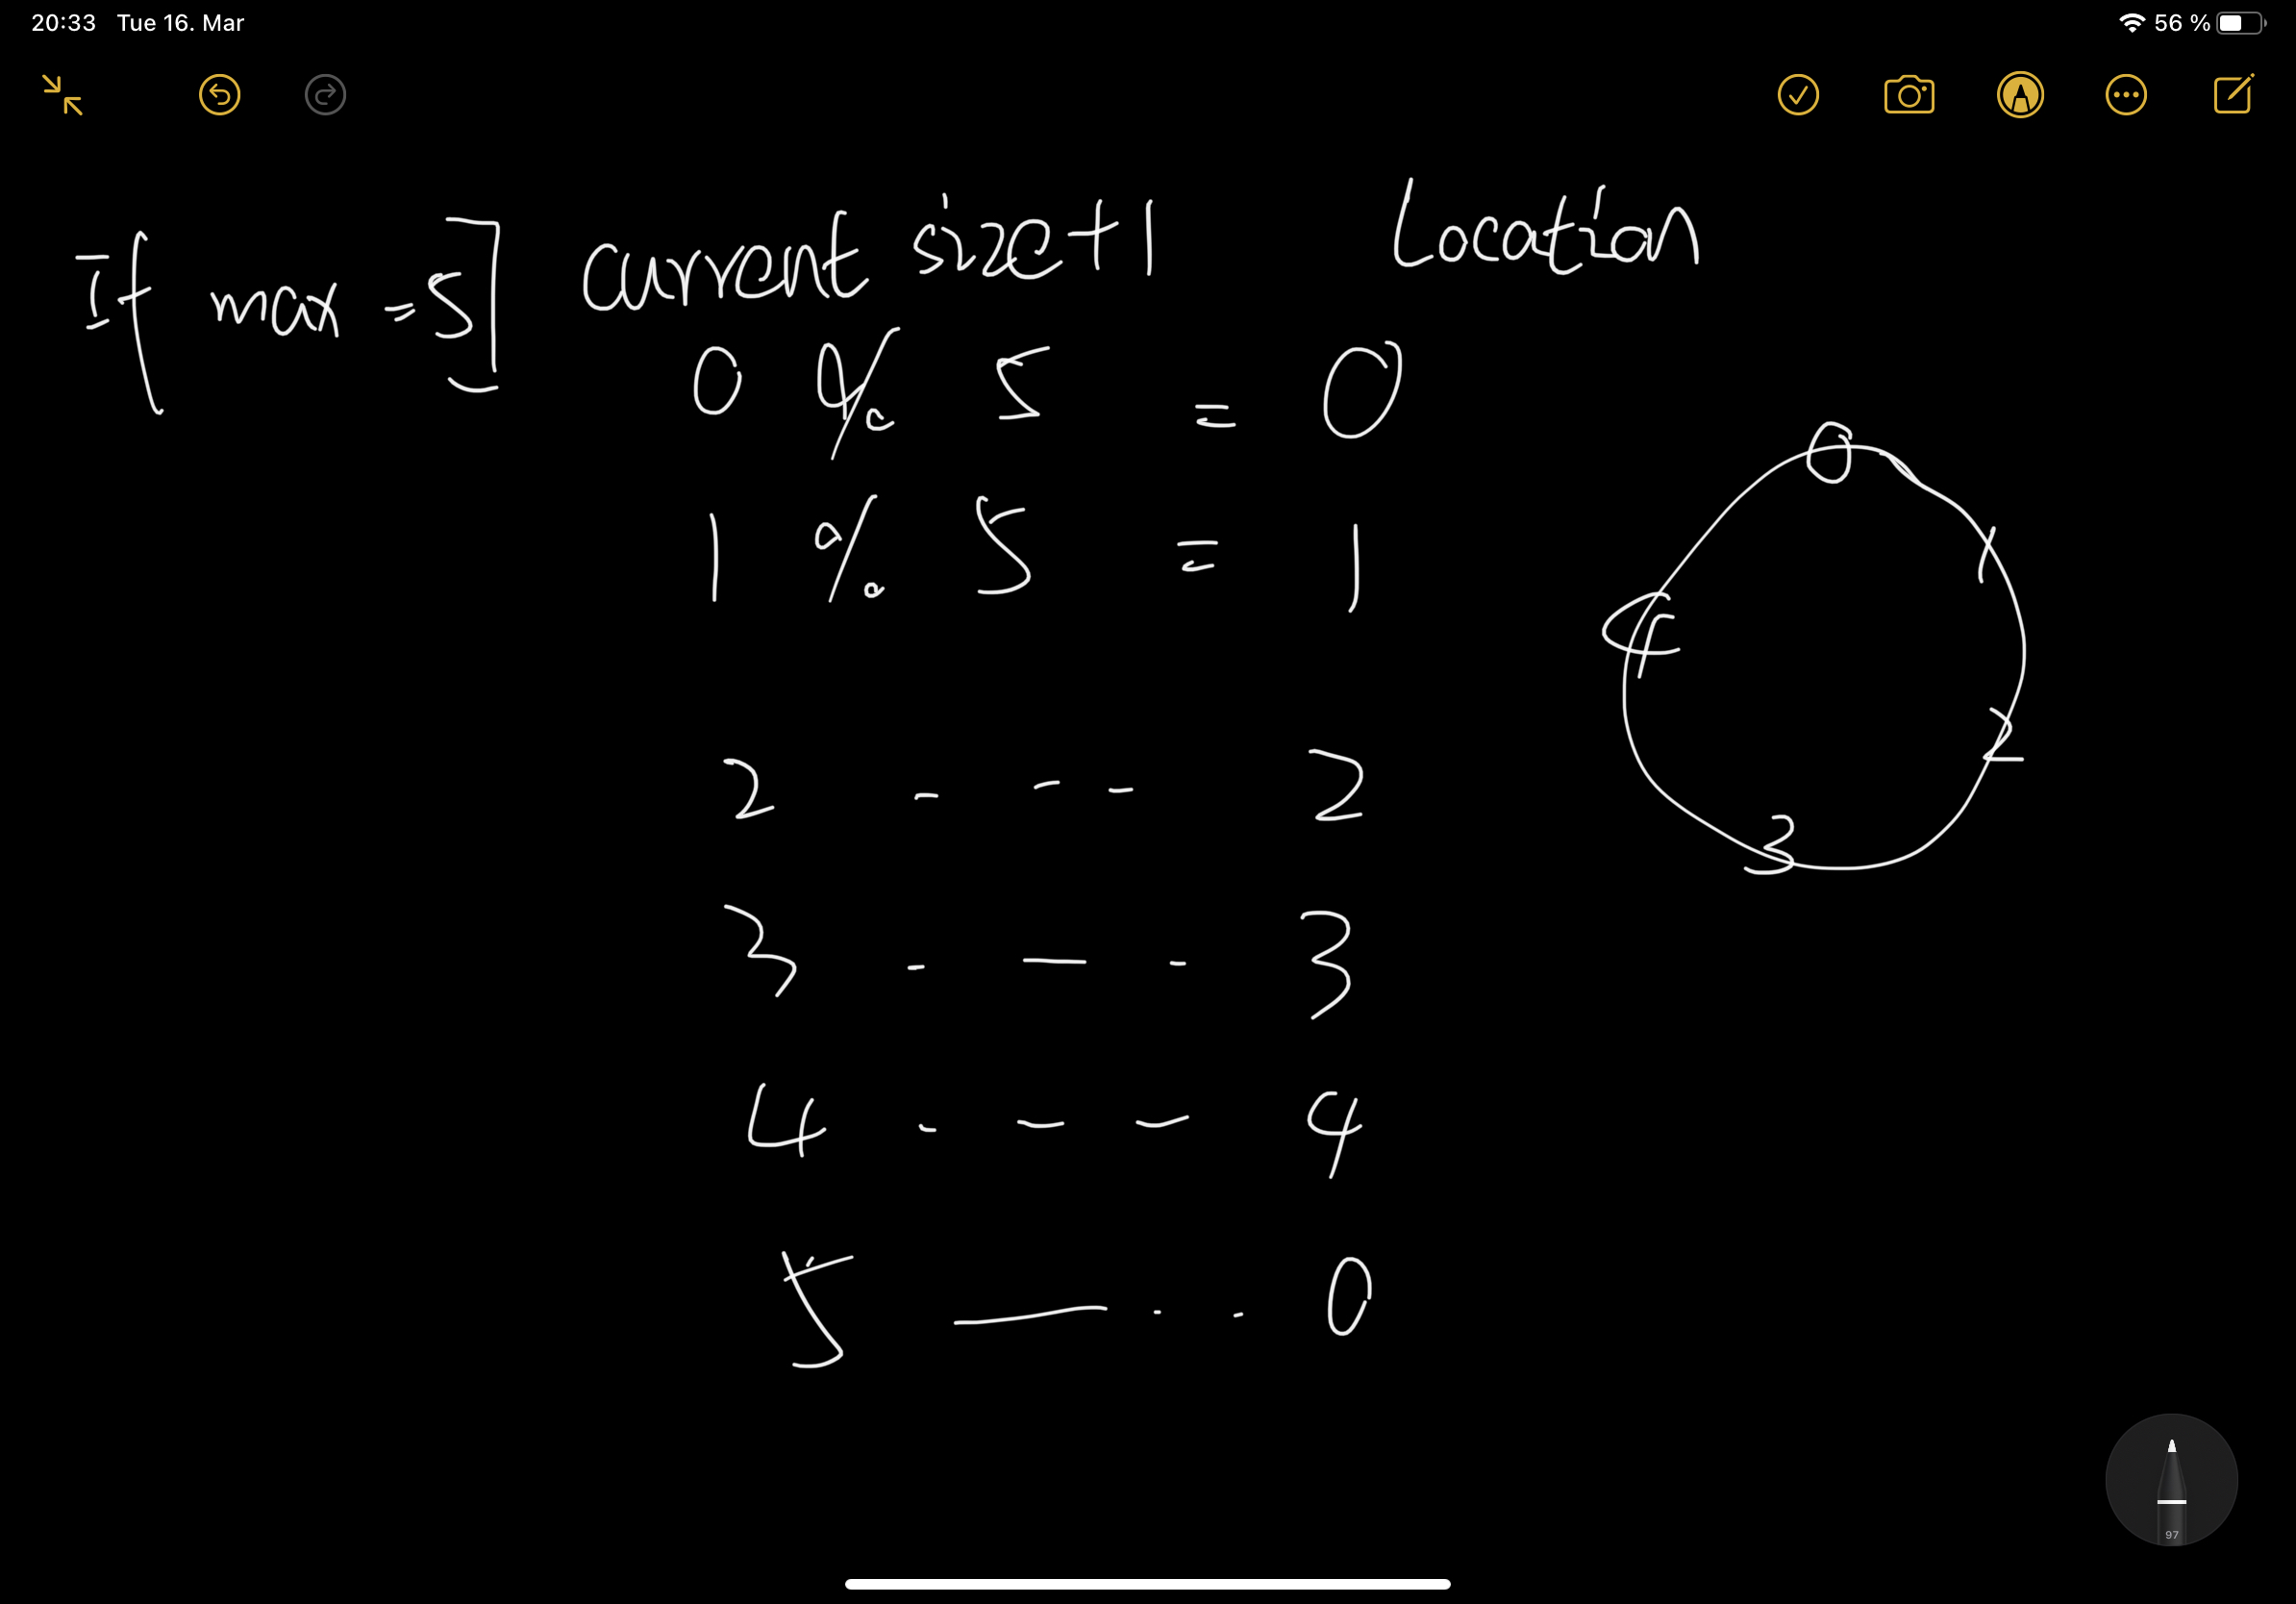 20:33 Tue 16. Mar 56 %
If max =5] current size+1 Location
0 % 5 = 0
1 % 5 = 1
2 - - - 2
3 - - - 3
4 - - - 4
5 - - - 0
0
1
4
2
3
97